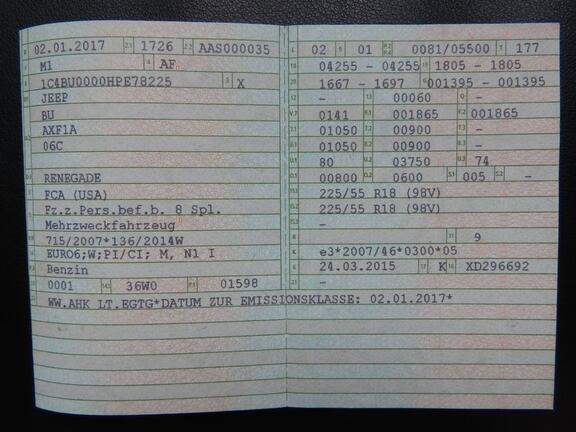 02.01.2017 2.1 1726 2.2 AAS000035
M1 4 AF
1C4BU0000HPE78225 3 X
JEEP
BU
AXF1A
06C
RENEGADE
FCA (USA)
Fz.z.Pers.bef.b. 8 Spl.
Mehrzweckfahrzeug
715/2007*136/2014W
EURO6;W;PI/CI; M, N1 I
Benzin
0001 36W0 01598
WW.AHK LT.EGTG*DATUM ZUR EMISSIONSKLASSE: 02.01.2017*
L 02 9 01 0081/05500 T 177
18 04255 - 04255 19 1805 - 1805
20 1667 - 1697 G 001395 - 001395
- 13 00060 Q -
V.7 0141 F.1 001865 F.2 001865
7.1 01050 7.2 00900 7.3 -
8.1 01050 8.2 00900 8.3 -
U.1 80 U.2 03750 U.3 74
O.1 00800 O.2 0600 S.1 005 S.2 -
15.1 225/55 R18 (98V)
15.2 225/55 R18 (98V)
15.3 -
R - 11 9
K e3*2007/46*0300*05
6 24.03.2015 17 K 16 XD296692
21 -